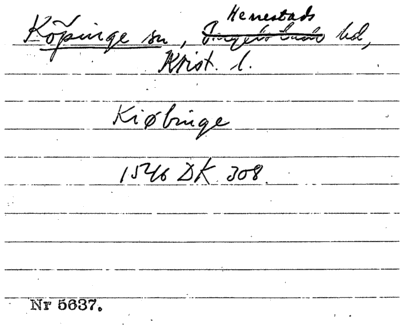 Köpinge sn, Herrestads hd,
Krist. l.
Kiøbinge
1546 DK 308.
Nr 5637.